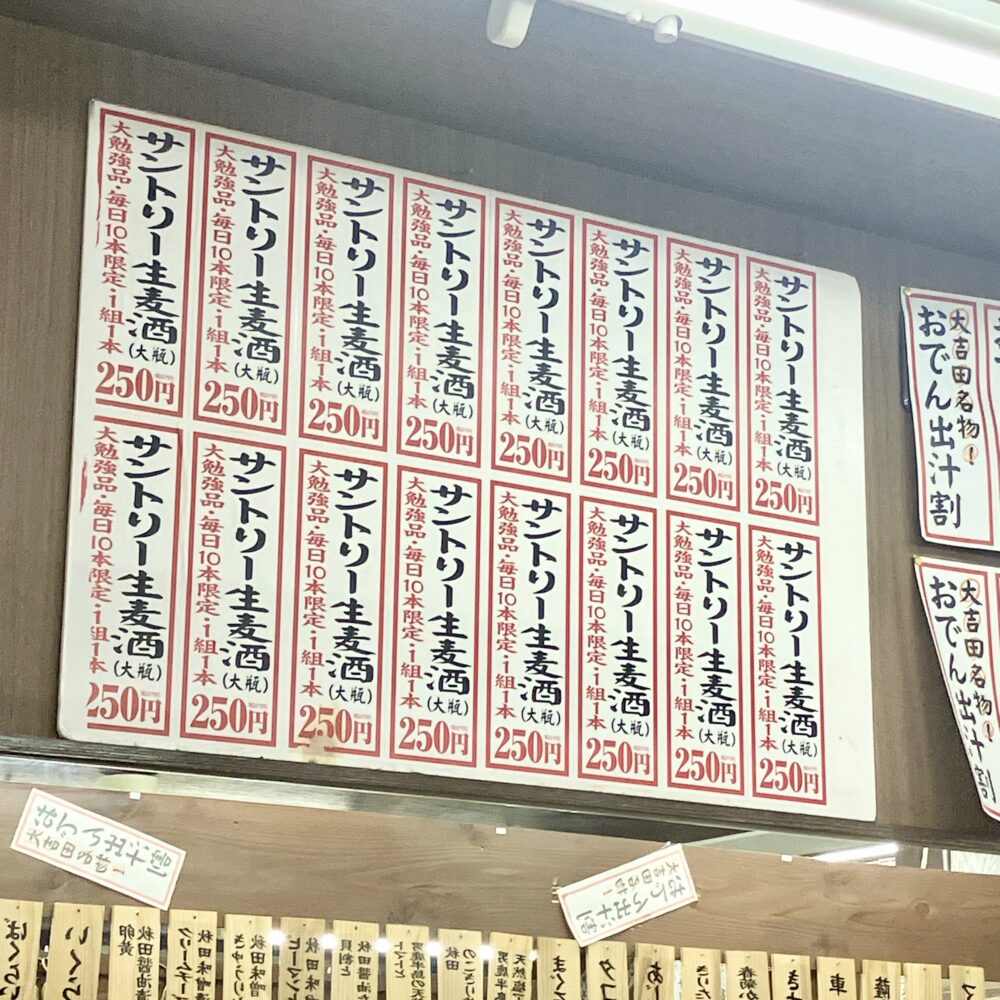 サントリー生麦酒(大瓶)
大勉強品・毎日10本限定・1組1本
250円
サントリー生麦酒(大瓶)
大勉強品・毎日10本限定・1組1本
250円
サントリー生麦酒(大瓶)
大勉強品・毎日10本限定・1組1本
250円
サントリー生麦酒(大瓶)
大勉強品・毎日10本限定・1組1本
250円
サントリー生麦酒(大瓶)
大勉強品・毎日10本限定・1組1本
250円
サントリー生麦酒(大瓶)
大勉強品・毎日10本限定・1組1本
250円
サントリー生麦酒(大瓶)
大勉強品・毎日10本限定・1組1本
250円
サントリー生麦酒(大瓶)
大勉強品・毎日10本限定・1組1本
250円
サントリー生麦酒(大瓶)
大勉強品・毎日10本限定・1組1本
250円
サントリー生麦酒(大瓶)
大勉強品・毎日10本限定・1組1本
250円
サントリー生麦酒(大瓶)
大勉強品・毎日10本限定・1組1本
250円
サントリー生麦酒(大瓶)
大勉強品・毎日10本限定・1組1本
250円
サントリー生麦酒(大瓶)
大勉強品・毎日10本限定・1組1本
250円
サントリー生麦酒(大瓶)
大勉強品・毎日10本限定・1組1本
250円
サントリー生麦酒(大瓶)
大勉強品・毎日10本限定・1組1本
250円
サントリー生麦酒(大瓶)
大勉強品・毎日10本限定・1組1本
250円
大吉田名物!
おでん出汁割
大吉田名物!
おでん出汁割
おでん出汁割
大吉田名物!
ばくらい
いくら
秋田醤油漬
卵黄
秋田味噌漬
クリームチーズ
秋田味噌
きゅうり
ピーマン
秋田醤油
貝割と
男鹿半島の天
トマトと
秋田
天然塩
男鹿半島
まぐ
タコ
あ
きりた
春菊か
車
薩